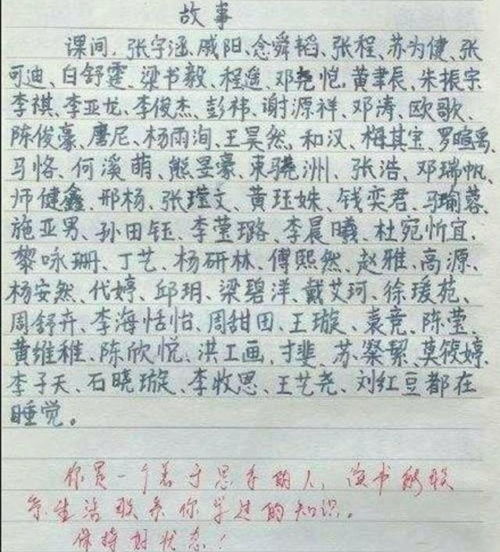 故事
课间,张宇涵、戚阳、念舜韬、张程、苏为健、张
可迪、白舒霆、梁书毅、程遥、邓尧恺、黄聿辰、朱振宇
李祺、李亚龙、李俊杰、彭祎、谢源祥、邓涛、欧歌、
陈俊豪、唐尼、杨雨洵、王昊然、和汉、梅其宝、罗暄禹、
马恪、何溪萌、熊昱豪、束骁洲、张浩、邓瑞帆、
师健鑫、邢杨、张瑾文、黄珏姝、钱奕君、马瑜蓉、
施亚男、孙田钰、李莹璐、李晨曦、杜宛忻宜、
黎咏珊、丁艺、杨研林、傅熙然、赵雅、高源、
杨安然、代婷、邱玥、梁碧洋、戴艾珂、徐瑗苑、
周舒卉、李海恬怡、周甜田、王璇、袁竞、陈莹、
黄维稚、陈欣悦、洪工画、才斐、苏、粲絜、莫筱婷、
李子天、石晓璇、李牧思、王艺尧、刘红豆都在
睡觉。
你是一个善于思考的人,读书能联
系生活联系你学过的知识。
保持好状态!